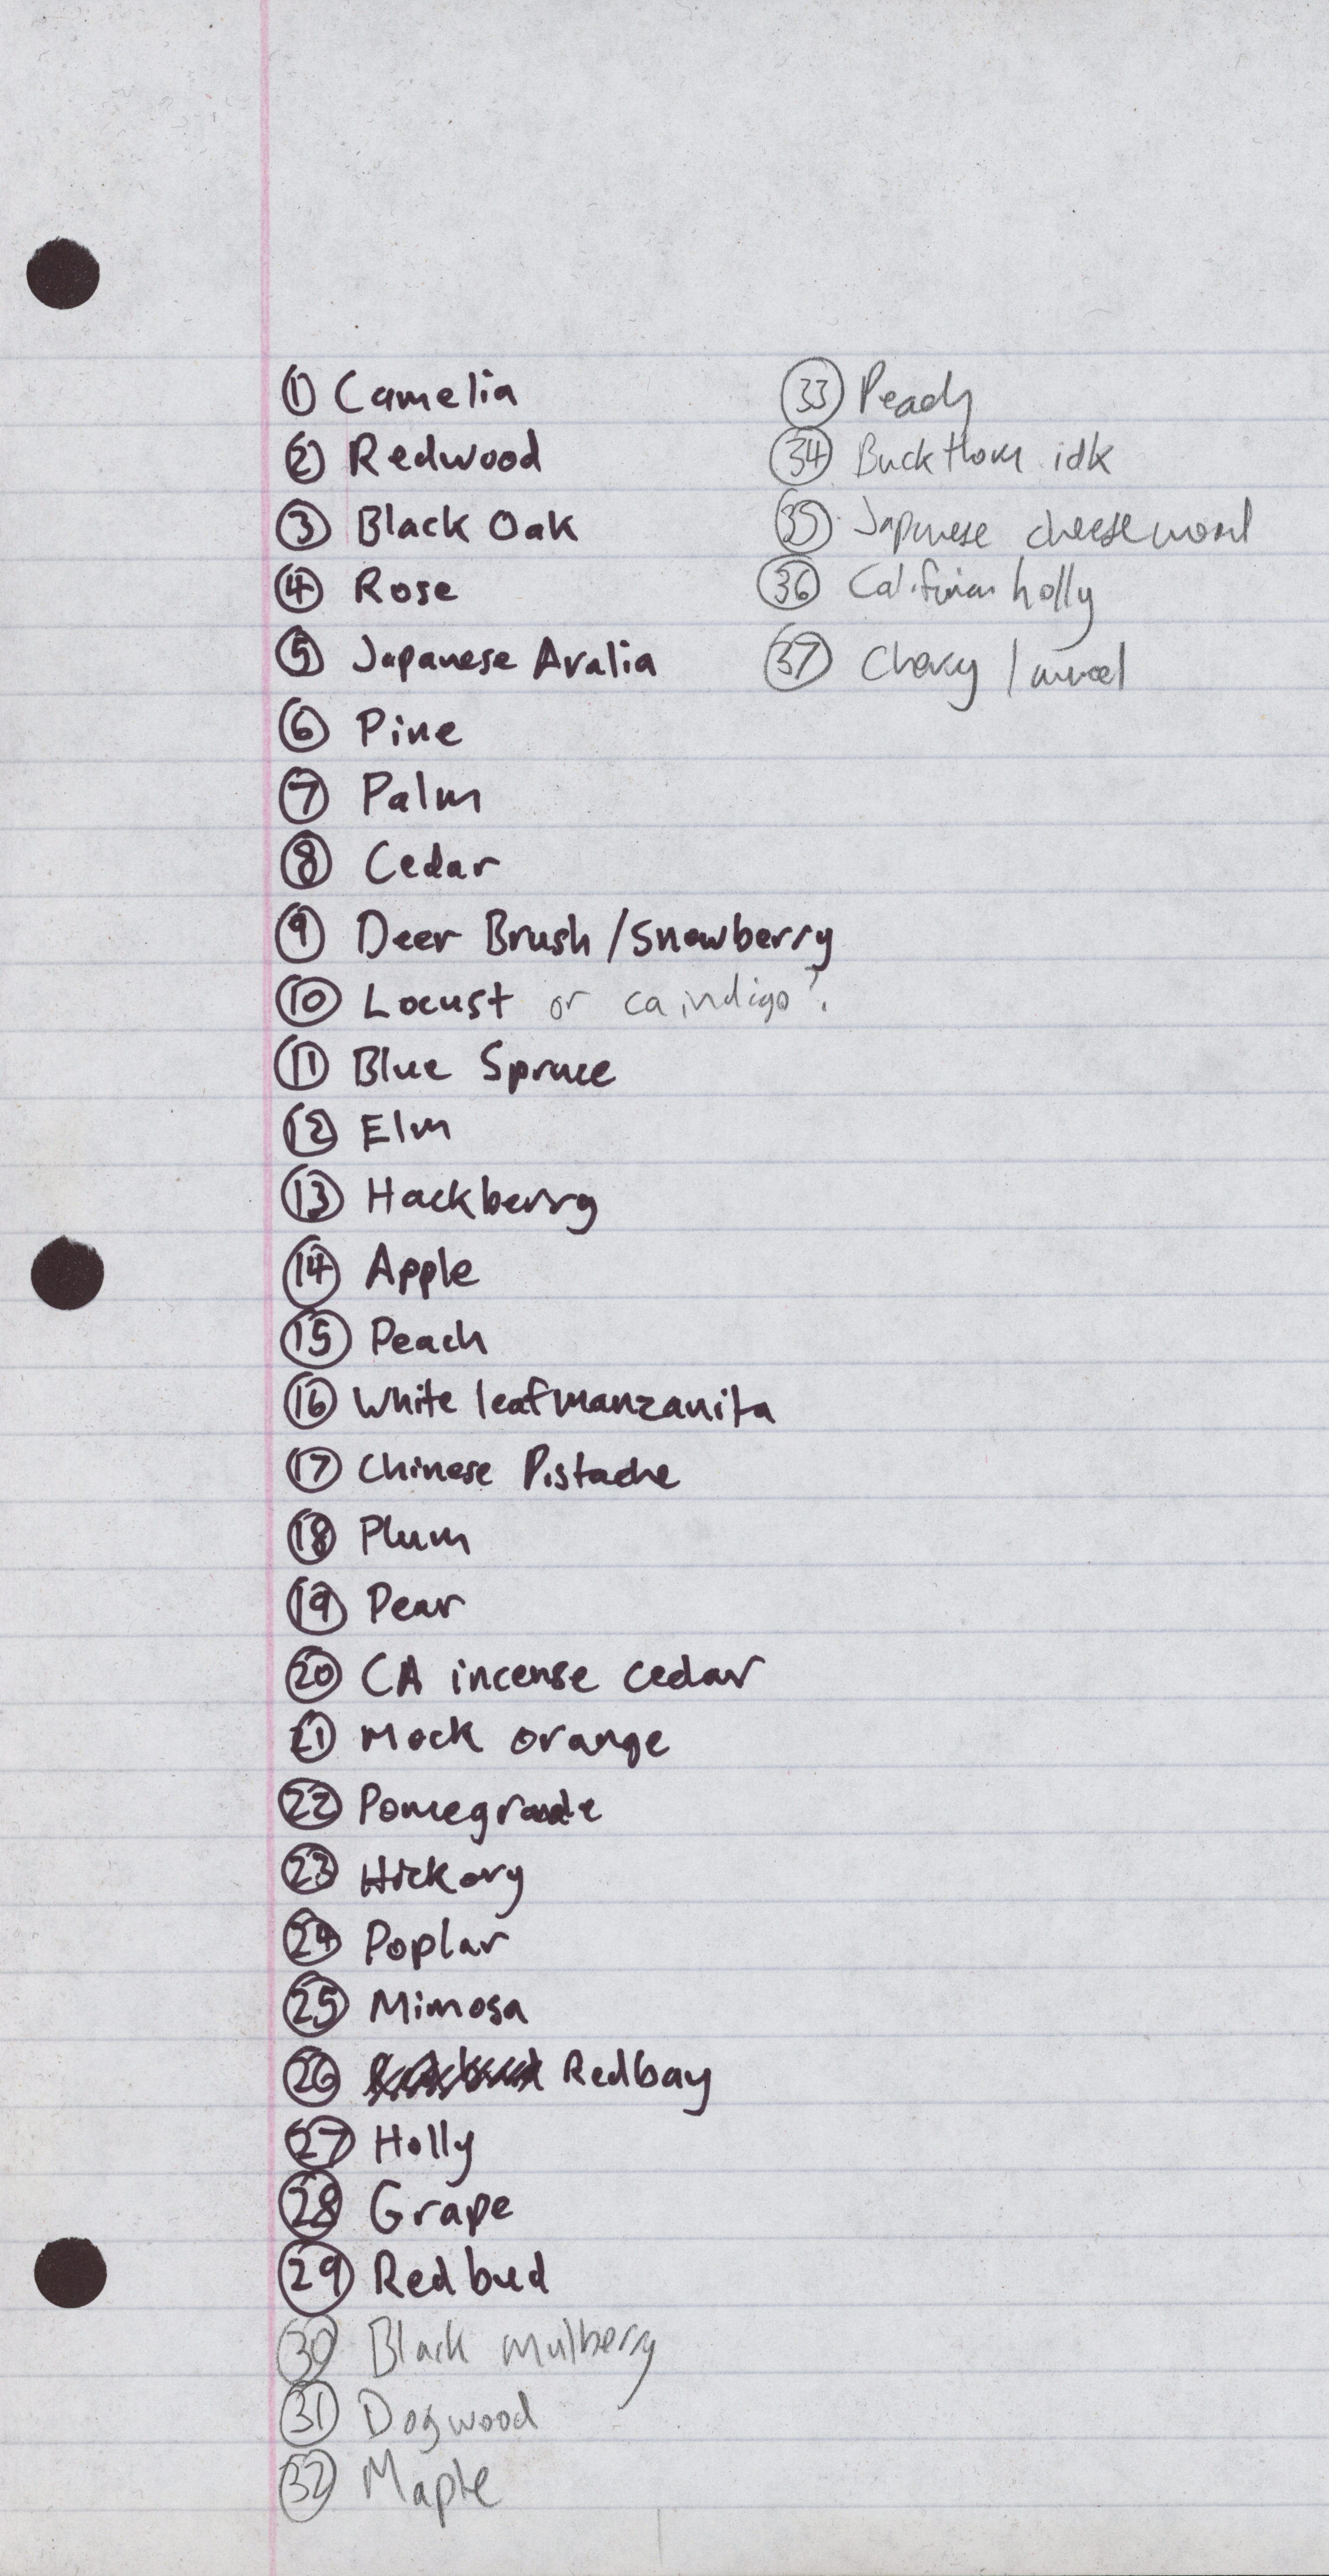 ① Camelia
② Redwood
③ Black Oak
④ Rose
⑤ Japanese Aralia
⑥ Pine
⑦ Palm
⑧ Cedar
⑨ Deer Brush / Snowberry
⑩ Locust or ca indigo?
⑪ Blue Spruce
⑫ Elm
⑬ Hackberry
⑭ Apple
⑮ Peach
⑯ White leaf manzanita
⑰ Chinese Pistache
⑱ Plum
⑲ Pear
⑳ CA incense cedar
㉑ Mock orange
㉒ Pomegranate
㉓ Hickory
㉔ Poplar
㉕ Mimosa
㉖ Redbay
㉗ Holly
㉘ Grape
㉙ Redbud
㉚ Black mulberry
㉛ Dogwood
㉜ Maple
㉝ Peach
㉞ Buckthorn idk
㉟ Japanese cheesewood
㊱ Californian holly
㊲ Cherry laurel